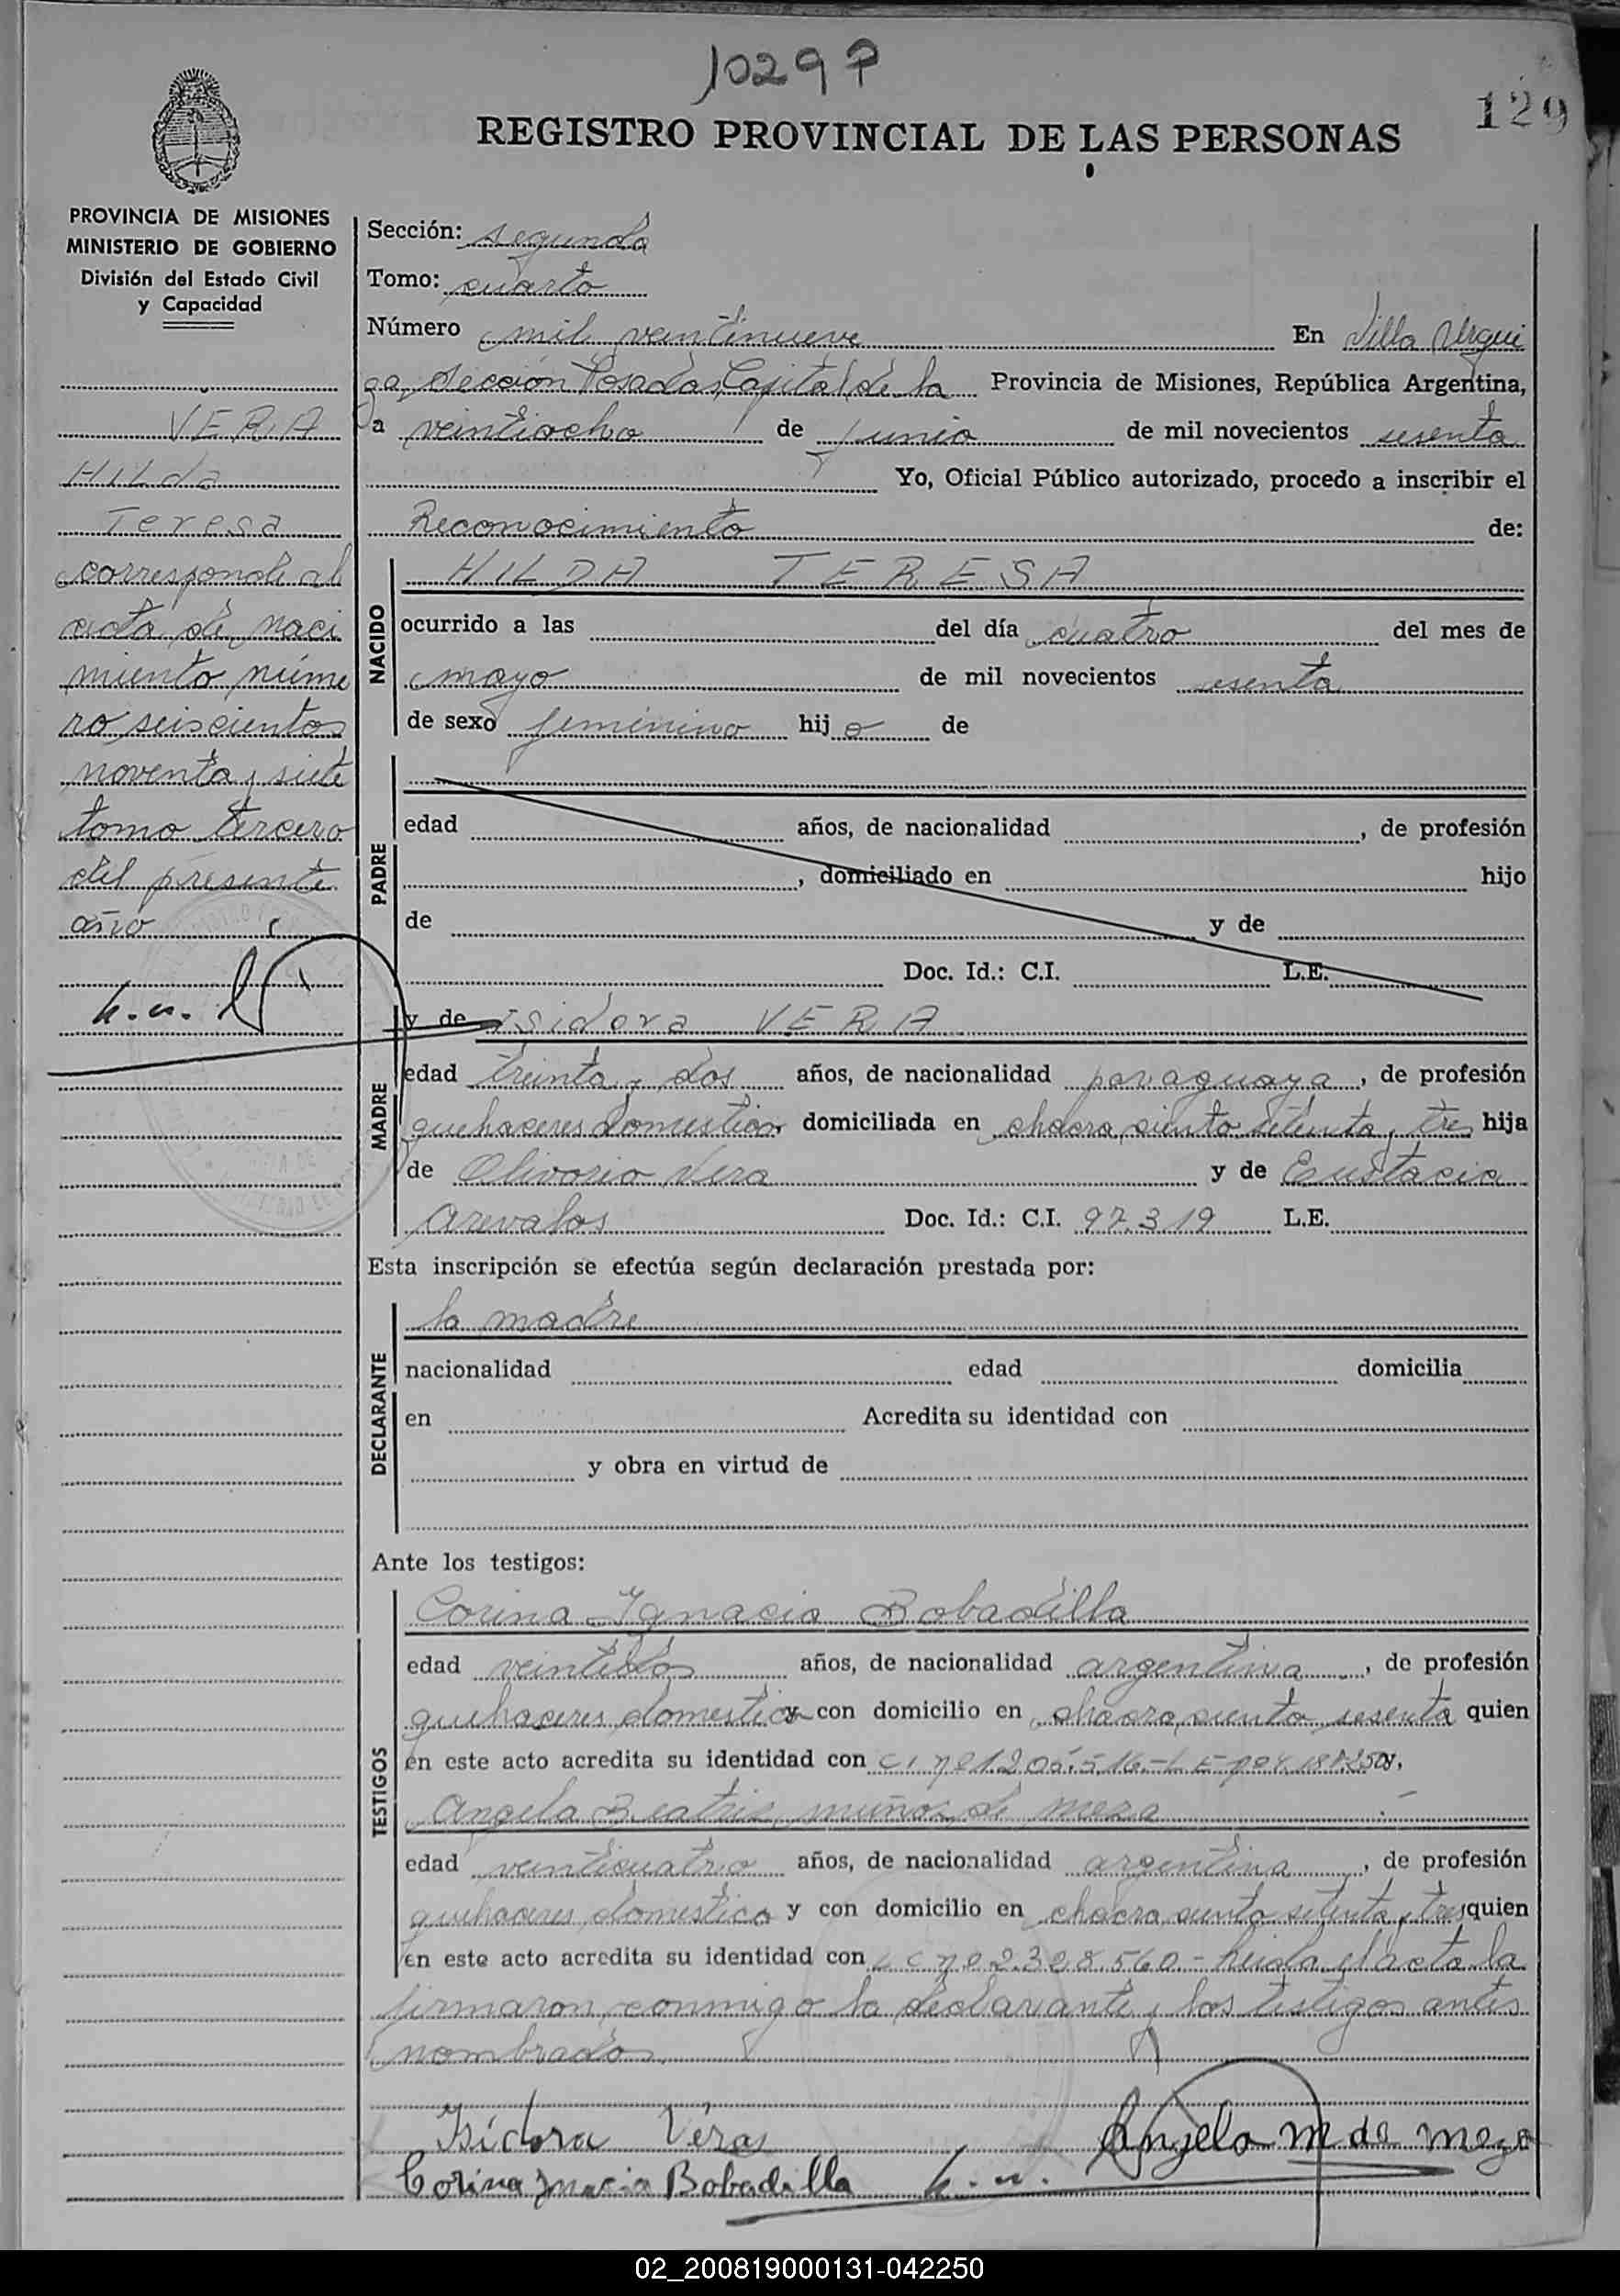 1029 P
129
REGISTRO PROVINCIAL DE LAS PERSONAS
PROVINCIA DE MISIONES
MINISTERIO DE GOBIERNO
División del Estado Civil
y Capacidad
VERA
HILda
Teresa
corresponde al
acta de naci
miento núme
ro seiscientos
noventa y siete
tomo tercero
del presente
año
Sección: segunda
Tomo: cuarto
Número mil veintinueve En Villa Urqui
za Sección Posadas Capital de la Provincia de Misiones, República Argentina,
a veintiocho de junio de mil novecientos sesenta
Yo, Oficial Público autorizado, procedo a inscribir el
Reconocimiento de:
NACIDO
HILDA TERESA
ocurrido a las del día cuatro del mes de
mayo de mil novecientos sesenta
de sexo femenino hij a de
PADRE
edad años, de nacionalidad , de profesión
, domiciliado en hijo
de y de
Doc. Id.: C.I. L.E.
MADRE
y de Isidora VERA
edad treinta y dos años, de nacionalidad paraguaya, de profesión
quehaceres domesticos domiciliada en chacra ciento setenta y tres hija
de Olivorio Vera y de Eustacia
Arevalos Doc. Id.: C.I. 97.319 L.E.
Esta inscripción se efectúa según declaración prestada por:
DECLARANTE
la madre
nacionalidad edad domicilia
en Acredita su identidad con
y obra en virtud de
Ante los testigos:
TESTIGOS
Corina Ignacia Bobadilla
edad veintidos años, de nacionalidad argentina, de profesión
quehaceres domestico y con domicilio en chacra ciento sesenta quien
en este acto acredita su identidad con C I nº 120.516
Angela Beatriz muñoz de meza
edad veinticuatro años, de nacionalidad argentina, de profesión
quehaceres domestico y con domicilio en chacra ciento setenta y tres quien
en este acto acredita su identidad con L C nº 2.328.560.- Leida el acta la
firmaron conmigo la declarante y los testigos antes
nombrados
Isidora Vera
Angela M de meza
Corina Bobadilla
02_200819000131-042250